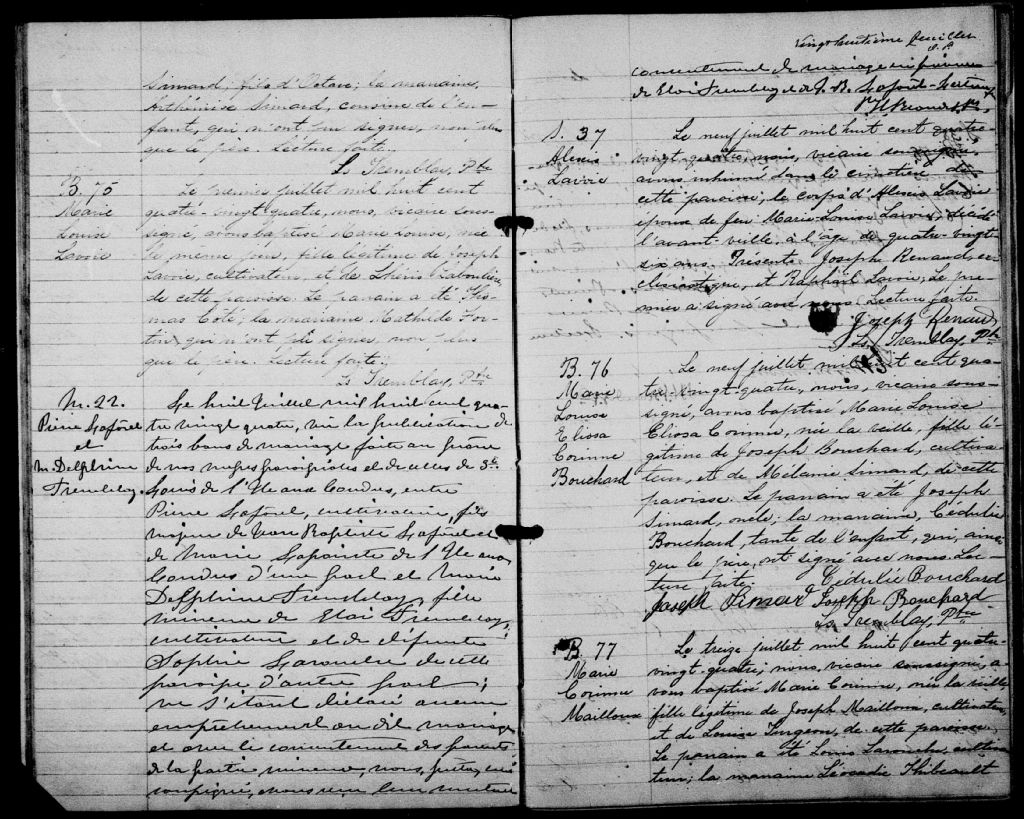 Simard, fils d'Octave; la marraine,
Arthémise Simard, cousine de l'en-
fant, qui n'ont pu signer, non plus
que le père. Lecture faite.
Ls Tremblay, Ptre
B. 75
Marie
Louise
Lavoie
Le premier juillet mil huit cent
quatre-vingt quatre, nous, vicaire sous-
signé, avons baptisé Marie Louise, née
le même jour, fille légitime de Joseph
Lavoie, cultivateur, et de
de cette paroisse. Le parrain a été Tho-
mas Coté; la marraine Mathilde For-
tin qui n'ont pu signer, non plus
que le père. Lecture faite.
Ls Tremblay, Ptre
M. 22.
Pierre
et
M. Delphine
Tremblay.
Le huit Juillet mil huit cent qua-
tre vingt quatre, vu la publication de
trois bans de mariage faite au prône
de nos messes paroissiales et de celles de St
Louis de l'Ile aux Coudres, entre
Pierre cultivateur, fils
majeur de Jean Baptiste et
de Marie Lapointe de l'Ile aux
Coudres d'une part et Marie
Delphine Tremblay, fille
mineure de Eloi Tremblay,
cultivateur et de défunte
Sophie de cette
paroisse d'autre part;
ne s'étant déclaré aucun
empêchement au dit mariage
et avec le consentement des parents
de la partie mineure, nous, prêtre, curé
soussigné, avons reçu leur mutuel
Vingt huitième feuillet
consentement de mariage en présence
de Eloi Tremblay et de J. B.
S. 37
Alexis
Lavoie
Le neuf juillet mil huit cent quatre-
vingt-quatre, nous, vicaire soussigné,
avons inhumé dans le cimetière de
cette paroisse, le corps d'Alexis Lavoie
époux de feu Marie Louise Lavoie, décédé
l'avant-veille, à l'age de quatre-vingt-
six ans. Présents Joseph Renaud, ec-
clésiastique, et Raphaël Lavoie. Le pre-
mier a signé avec nous. Lecture faite.
Joseph Renaud
Ls Tremblay, Ptre
B. 76
Marie
Louise
Eliosa
Corinne
Bouchard
Le neuf juillet mil huit cent qua-
tre-vingt-quatre, nous, vicaire sous-
signé, avons baptisé Marie Louise
Eliosa Corinne, née la veille, fille lé-
gitime de Joseph Bouchard, cultiva-
teur, et de Mélanie Simard, de cette
paroisse. Le parrain a été Joseph
Simard, oncle; la marraine, Cédulie
Bouchard, tante de l'enfant, qui, ainsi
que le père, ont signé avec nous. Lec-
ture faite. Cédulie Bouchard
Joseph Simard Joseph Bouchard
Ls Tremblay, Ptre
B. 77
Marie
Corinne
Mailloux
Le treize juillet mil huit cent quatre-
vingt-quatre, nous, vicaire soussigné, a-
vons baptisé Marie Corinne, née la veille
fille légitime de Joseph Mailloux, cultivateur,
et de Louise Turgeon, de cette paroisse.
Le parrain a été Louis cultiva-
teur; la marraine Léocadie Thibeault